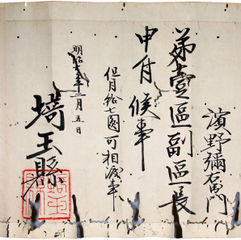 濱野彌右衛門
第壹區副區長
申付候事
但月給七圓可相渡事
明治六年二月五日
埼玉縣